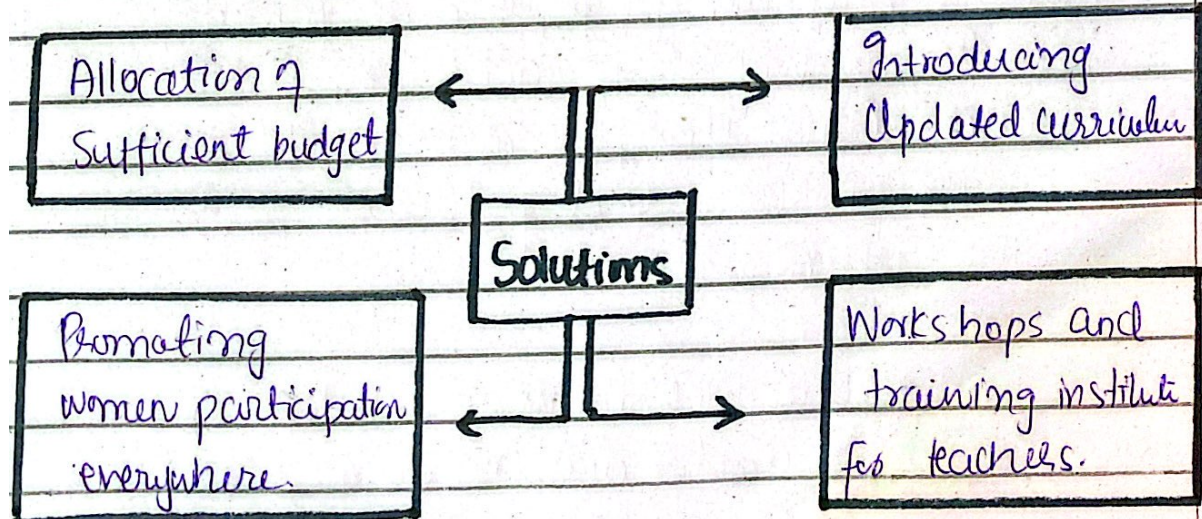 Allocation of
Sufficient budget
Introducing
Updated curriculum
Solutions
Promoting
women participation
everywhere.
Workshops and
training institute
for teachers.